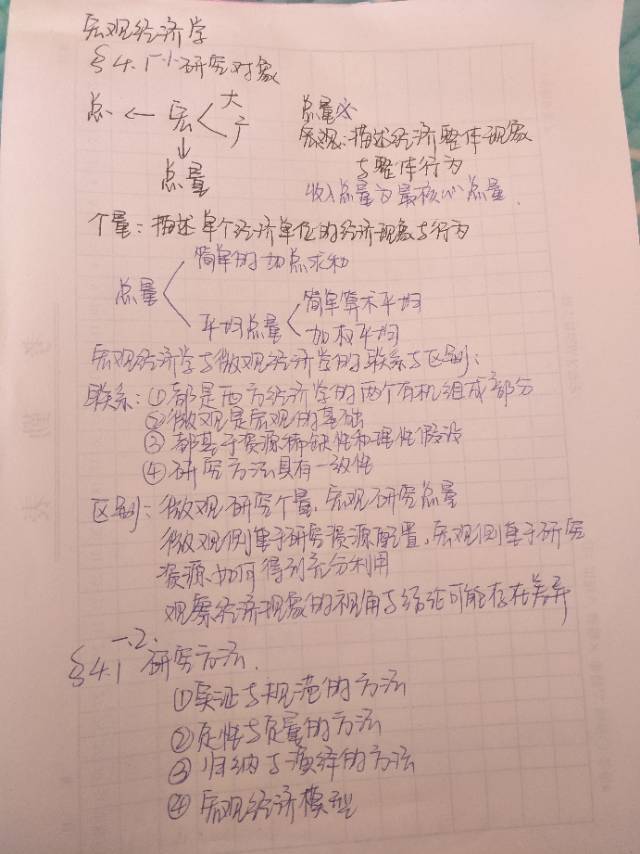 宏观经济学
§4.1 一.1.研究对象
总 ← 宏 大
于
↓
总量
总量
宏观:描述经济整体现象
与整体行为
收入总量为最核心总量.
个量:描述单个经济单位的经济现象与行为
总量
简单的加总求和
平均总量
简单算术平均
加权平均
宏观经济学与微观经济学的联系与区别:
联系:①都是西方经济学的两个有机组成部分
②微观是宏观的基础
③都基于资源稀缺性和理性假设
④研究方法具有一致性
区别:微观研究个量,宏观研究总量
微观侧重于研究资源配置,宏观侧重于研究
资源如何得到充分利用
观察经济现象的视角与结论可能存在差异
§4.1 一.2. 研究方法.
①实证与规范的方法
②定性与定量的方法
③归纳与演绎的方法
④宏观经济模型